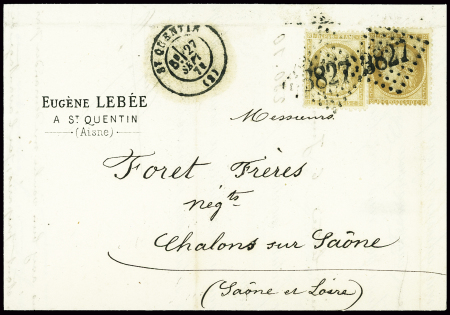 ST QUENTIN
27
SEPT
71
(1)
3827 3827
EUGÈNE LEBÉE
A ST QUENTIN
(Aisne)
Messieurs
Foret Frères
négts
Chalons sur Saône
(Saône et Loire)